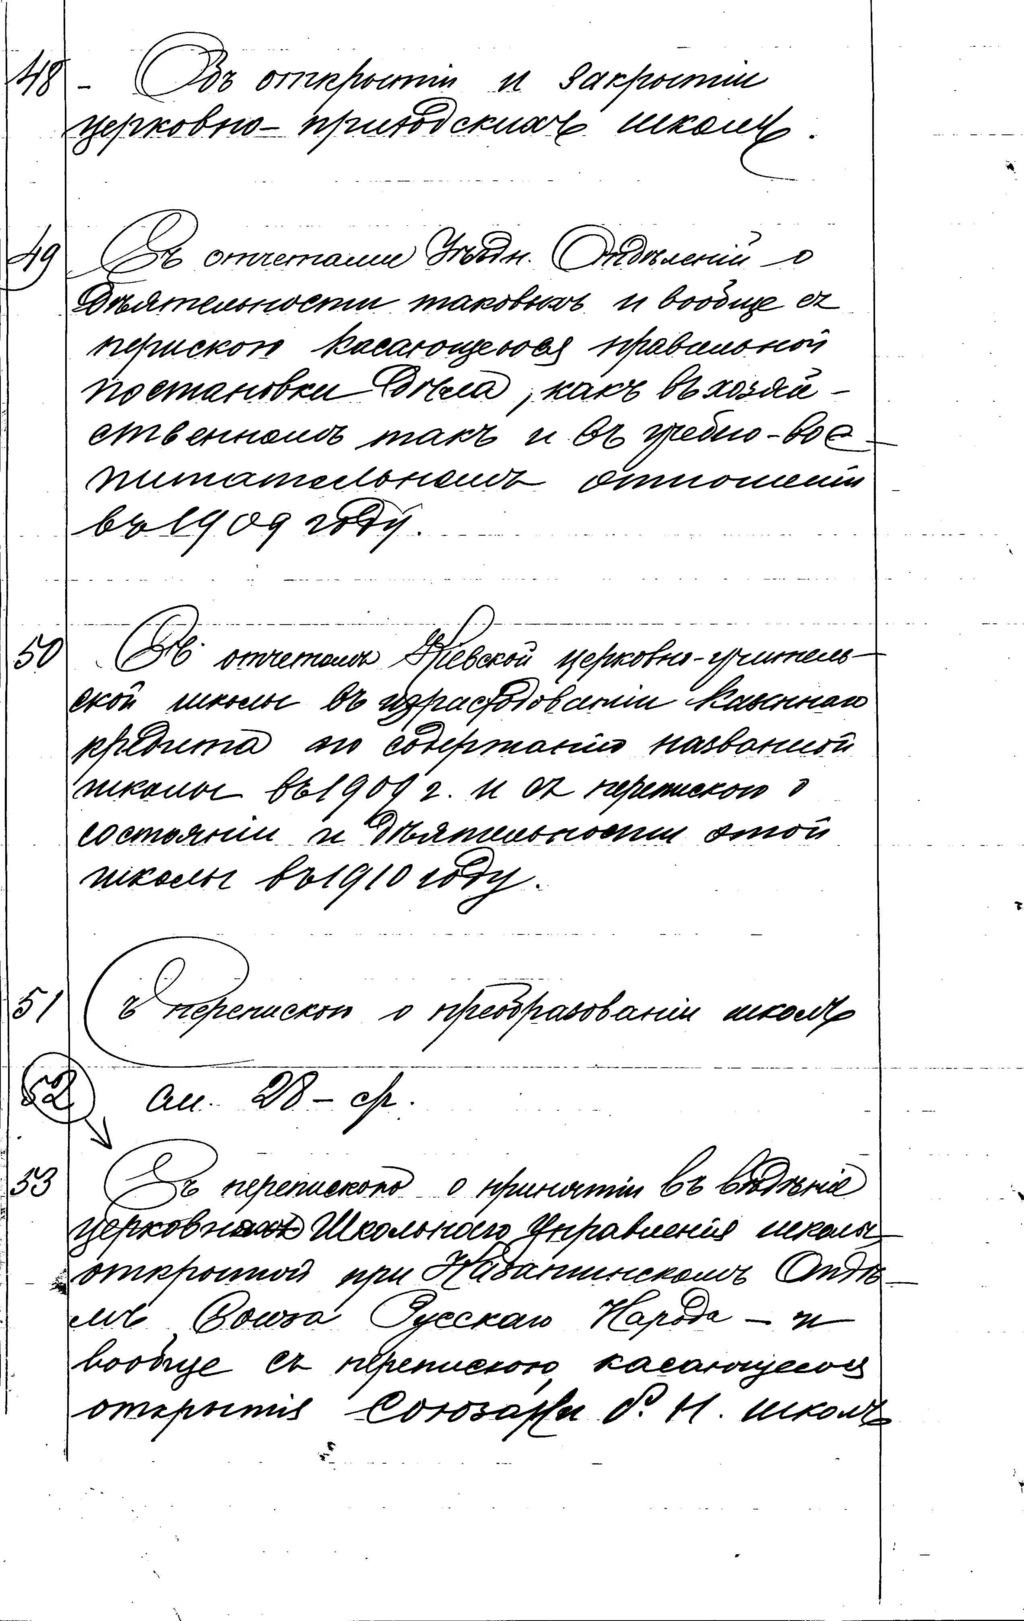 48 - Объ открытіи и закрытіи
церковно-приходскихъ школъ.
49 Съ отчетами Уѣздн. Отдѣленій о
дѣятельности таковыхъ и вообще съ
перискою касающеюся правильной
постановки дѣла, какъ въ хозяй-
ственномъ такъ и въ учебно-вос
питательномъ отношеніи
въ 1909 году.
50 Съ отчетомъ Кіевской церковно-учитель-
ской школы въ израсходованіи казеннаго
кредита по содержанію названной
школы въ 1909 г. и съ перепискою о
состояніи и дѣятельности этой
школы въ 1910 году.
51 Съ перепискою о преобразованіи школъ
52 см. 28 - ср.
53 Съ перепискою о принятіи въ вѣдѣніе
церковнаго Школьнаго Управленія школы
открытой при Отдѣ
лѣ Союза Русскаго Народа - и
вообще съ перепискою, касающеюся
открытія Союзами Р. Н. школъ